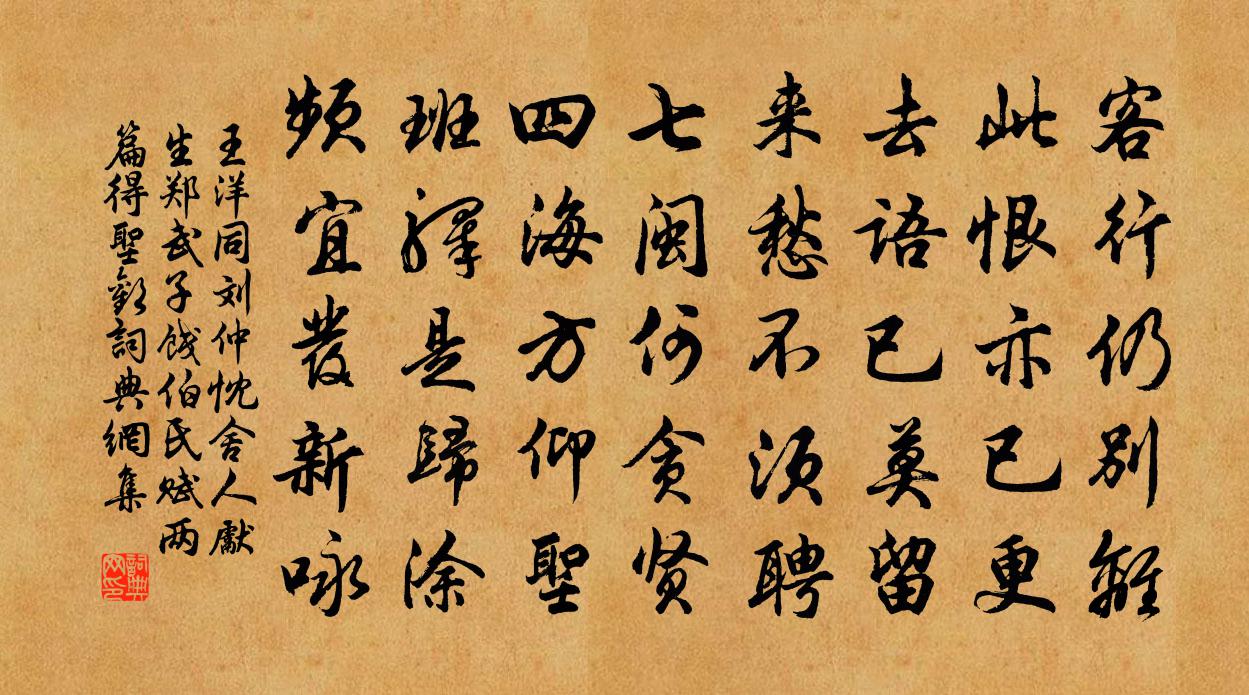 客行仍别離
此恨亦已更
去語已莫留
来愁不须聘
七闽何贪贤
四海方仰聖
班驛是歸涂
频宜發新咏
王洋同刘仲忱舍人獻
生郑武子饯伯氏赋两
篇得聖勸詞典網集
詞典网印